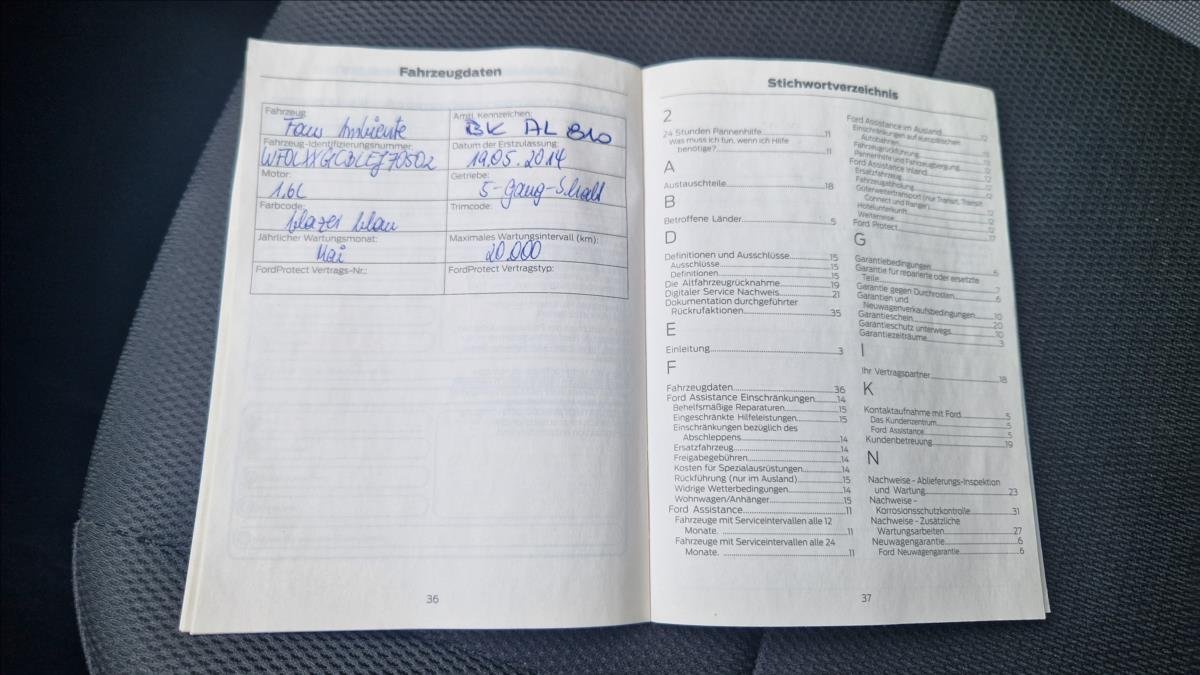 Fahrzeugdaten
Fahrzeug:
Amtl. Kennzeichen:
Focus Ambiente
BK AL 810
Fahrzeug-Identifizierungsnummer:
Datum der Erstzulassung:
19.05.2014
Motor:
Getriebe:
1,6L
5-Gang-Schalt
Farbcode:
Trimcode:
blazer blau
Jährlicher Wartungsmonat:
Maximales Wartungsintervall (km):
Mai
20.000
FordProtect Vertrags-Nr.:
FordProtect Vertragstyp:
36
Stichwortverzeichnis
2
24 Stunden Pannenhilfe 11
Was muss ich tun, wenn ich Hilfe
benötige? 11
A
Austauschteile 18
B
Betroffene Länder 5
D
Definitionen und Ausschlüsse 15
Ausschlüsse 15
Definitionen 15
Die Altfahrzeugrücknahme 19
Digitaler Service Nachweis 21
Dokumentation durchgeführter
Rückrufaktionen 35
E
Einleitung 3
F
Fahrzeugdaten 36
Ford Assistance Einschränkungen 14
Behelfsmäßige Reparaturen 15
Eingeschränkte Hilfeleistungen 15
Einschränkungen bezüglich des
Abschleppens 14
Ersatzfahrzeug 14
Freigabegebühren 14
Kosten für Spezialausrüstungen 14
Rückführung (nur im Ausland) 15
Widrige Wetterbedingungen 14
Wohnwagen/Anhänger 15
Ford Assistance 11
Fahrzeuge mit Serviceintervallen alle 12
Monate. 11
Fahrzeuge mit Serviceintervallen alle 24
Monate. 11
Ford Assistance im Ausland
Einschränkungen auf europäischen
Autobahnen
Fahrzeugrückführung
Pannenhilfe und Fahrzeugbergung
Ford Assistance Inland
Ersatzfahrzeug
Fahrzeugabholung
Güterweitertransport (nur Transit, Transit
Connect und Ranger)
Hotelunterkunft
Weiterreise
Ford Protect 17
G
Garantiebedingungen 6
Garantie für reparierte oder ersetzte
Teile 7
Garantie gegen Durchrosten 6
Garantien und
Neuwagenverkaufsbedingungen 10
Garantieschein 20
Garantieschutz unterwegs 10
Garantiezeiträume 3
I
Ihr Vertragspartner 18
K
Kontaktaufnahme mit Ford 5
Das Kundenzentrum 5
Ford Assistance 5
Kundenbetreuung 19
N
Nachweise - Ablieferungs-Inspektion
und Wartung 23
Nachweise -
Korrosionsschutzkontrolle 31
Nachweise - Zusätzliche
Wartungsarbeiten 27
Neuwagengarantie 6
Ford Neuwagengarantie 6
37